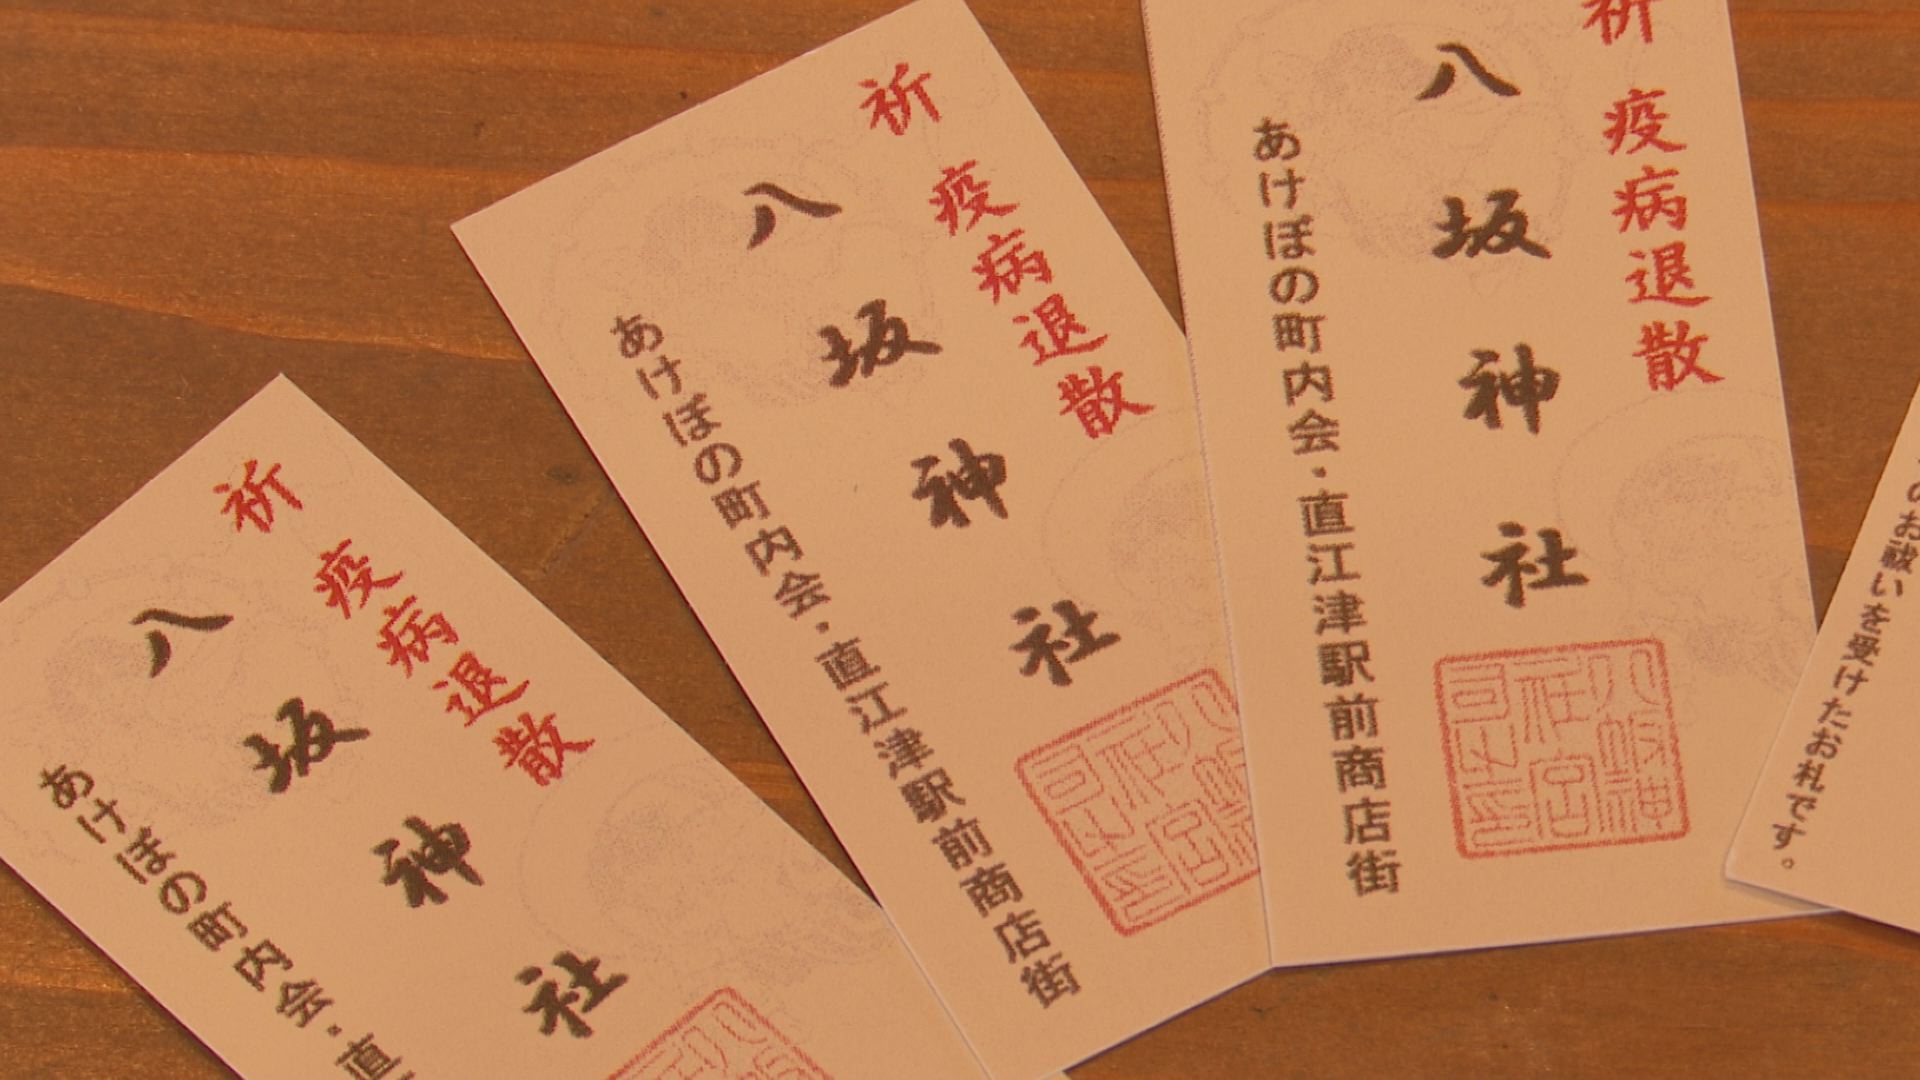 祈 疫病退散
八坂神社
あけぼの町内会・直
祈 疫病退散
八坂神社
あけぼの町内会・直江津駅前商店街
祈 疫病退散
八坂神社
あけぼの町内会・直江津駅前商店街
のお祓いを受けたお札です。